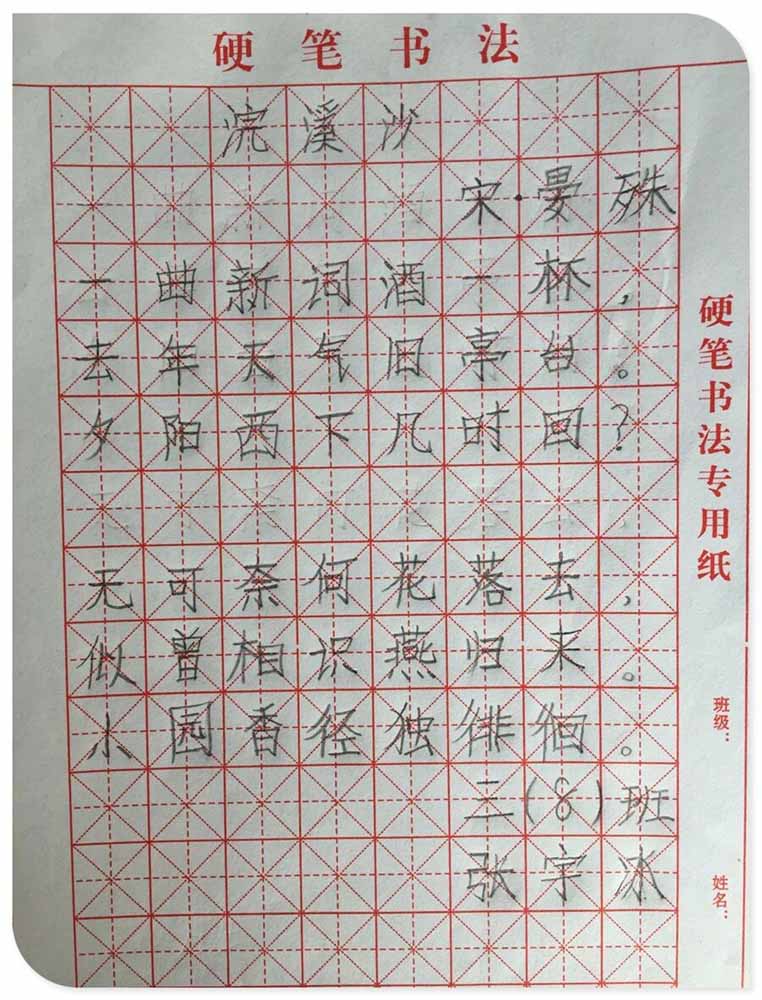 硬笔书法
浣溪沙
宋·晏殊
一曲新词酒一杯，
去年天气旧亭台。
夕阳西下几时回？
无可奈何花落去，
似曾相识燕归来。
小园香径独徘徊。
三(8)班
张宇冰
硬笔书法专用纸
班级：
姓名：